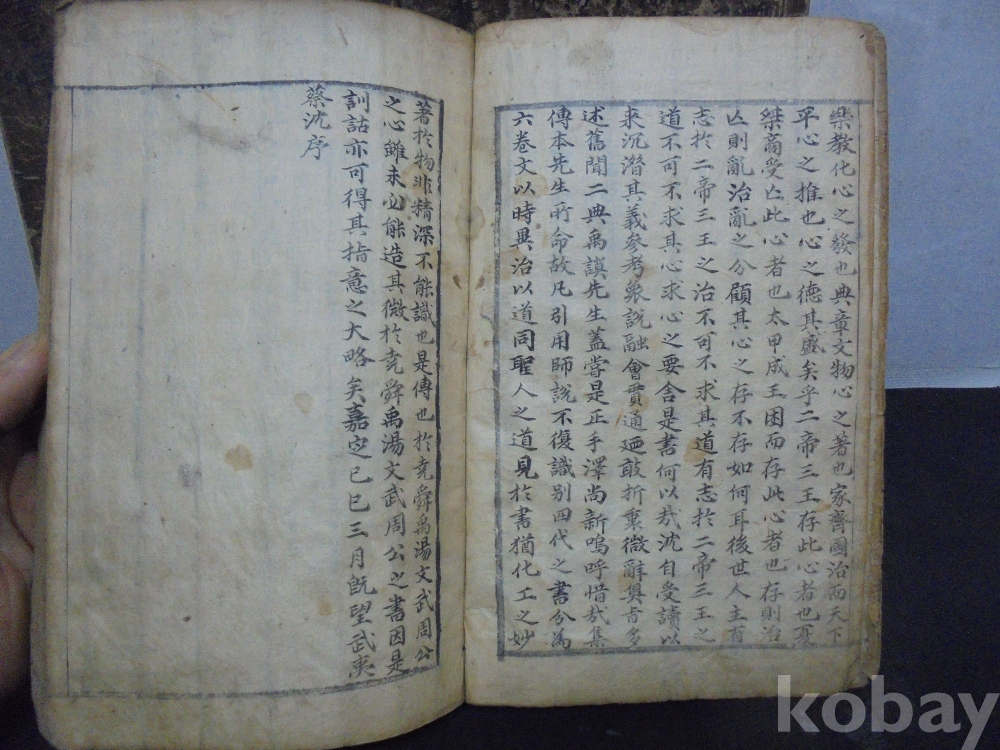 樂教化心之發也典章文物心之著也家齊國治而天下
平心之推也心之德其盛矣乎二帝三王存此心者也夏
桀商受亡此心者也太甲成王困而存此心者也存則治
亡則亂治亂之分顧其心之存不存如何耳後世人主有
志於二帝三王之治不可不求其道有志於二帝三王之
道不可不求其心求心之要舍是書何以哉沈自受讀以
來沉潛其義參考衆說融會貫通廼敢折衷微辭奧旨多
述舊聞二典禹謨先生蓋嘗是正手澤尚新嗚呼惜哉集
傳本先生所命故凡引用師說不復識别四代之書分為
六卷文以時異治以道同聖人之道見於書猶化工之妙
著於物非精深不能識也是傳也於堯舜禹湯文武周公
之心雖未必能造其微於堯舜禹湯文武周公之書因是
訓詁亦可得其指意之大略矣嘉定己巳三月旣望武夷
蔡沈序
kobay